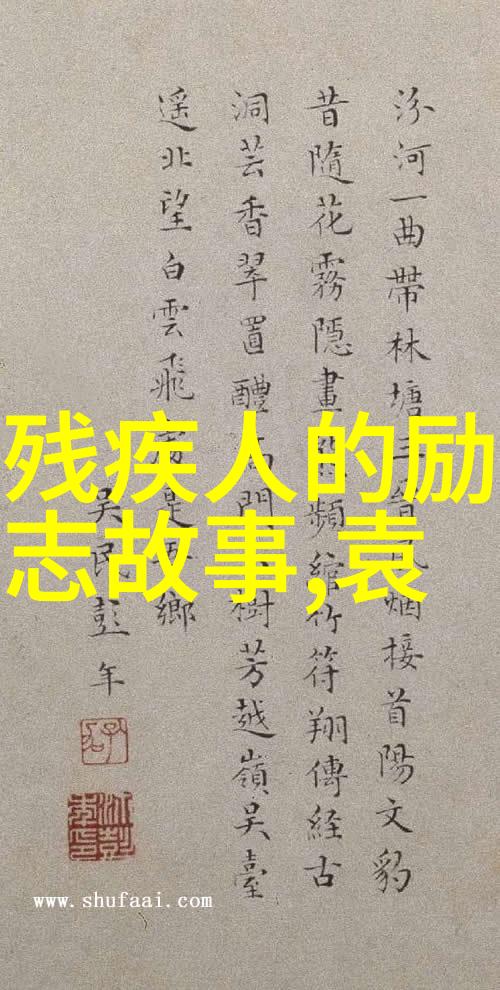 汾河一曲帶林塘三晉風烟接首陽文豹
昔隨花霧隱畫頻綰竹符翔傳經古
洞芸香翠置醴高門樹芳越嶺吳臺
遥北望白雲飛處是吾鄉
吳民彭年
残疾人的励
志故事,袁
www.shufaai.com